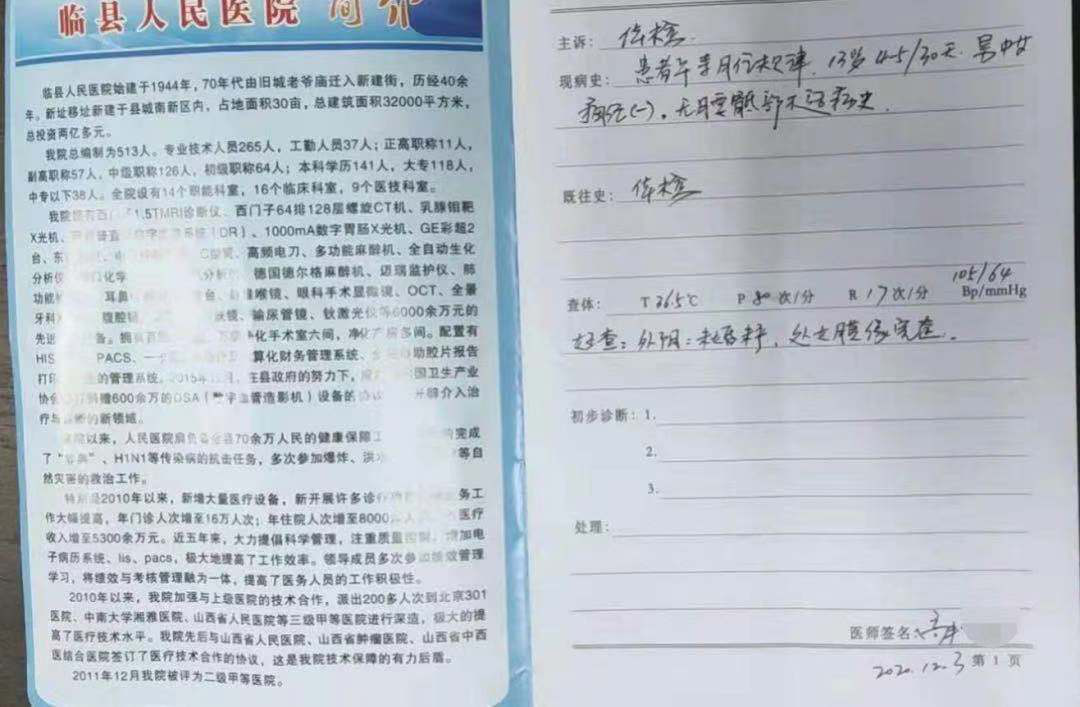 临县人民医院 简介
临县人民医院始建于1944年，70年代由旧城老爷庙迁入新建街，历经40余
年。新址移址新建于县城南新区内，占地面积30亩，总建筑面积32000平方米，
总投资两亿多元。
我院总编制为513人。专业技术人员265人，工勤人员37人；正高职称11人，
副高职称57人，中级职称126人，初级职称64人；本科学历141人，大专118人，
中专以下38人。全院设有14个职能科室，16个临床科室，9个医技科室。
我院拥有西门子1.5TMRI诊断仪、西门子64排128层螺旋CT机、乳腺钼靶
X光机、（DR）、1000mA数字胃肠X光机、GE彩超2
台、C型臂、高频电刀、多功能麻醉机、全自动生化
分析仪、化学分析、德国德尔格麻醉机、迈瑞监护仪、肺
功能、耳鼻、喉镜、眼科手术显微镜、OCT、全景
牙科、腹腔镜、镜、输尿管镜、钬激光仪等6000余万元的
先进设备。拥有百级、万级净化手术室六间，净化产房多间。配置有
HIS、PACS、一卡、算化财务管理系统、自助胶片报告
打印的管理系统。2015年，在县政府的努力下，国卫生产业
协会捐赠600余万的DSA（数字血管造影机）设备的协议，开辟介入治
疗与诊断的新领域。
以来，人民医院肩负着全县70余万人民的健康保障工完成
了“非典”、H1N1等传病的抗击任务，多次参加爆炸、洪水等自
然灾害的救治工作。
特别是2010年以来，新增大量医疗设备，新开展许多诊疗务工
作大幅提高，年门诊人次增至16万人次；年住院人次增至8000医疗
收入增至5300余万元。近五年来，大力提倡科学管理，注重质量增加电
子病历系统、lis、pacs，极大地提高了工作效率。领导成员多次参加绩效管理
学习，将绩效与考核管理融为一体，提高了医务人员的工作积极性。
2010年以来，我院加强与上级医院的技术合作，派出200多人次到北京301
医院、中南大学湘雅医院、山西省人民医院等三级甲等医院进行深造，极大的提
高了医疗技术水平。我院先后与山西省人民医院、山西省肿瘤医院、山西省中西
医结合医院签订了医疗技术合作的协议，这是我院技术保障的有力后盾。
2011年12月我院被评为二级甲等医院。
主诉：体检
现病史：患者平素月经规律，13岁 4-5/30天
病史(一)，无
既往史：体检
105/64
查体： T 36.5℃ P 80次/分 R 17次/分 Bp/mmHg
妇查：外阴：未婚，处女膜缘完整。
初步诊断：1.
2.
3.
处理：
医师签名：
2020.12.3 第 1 页